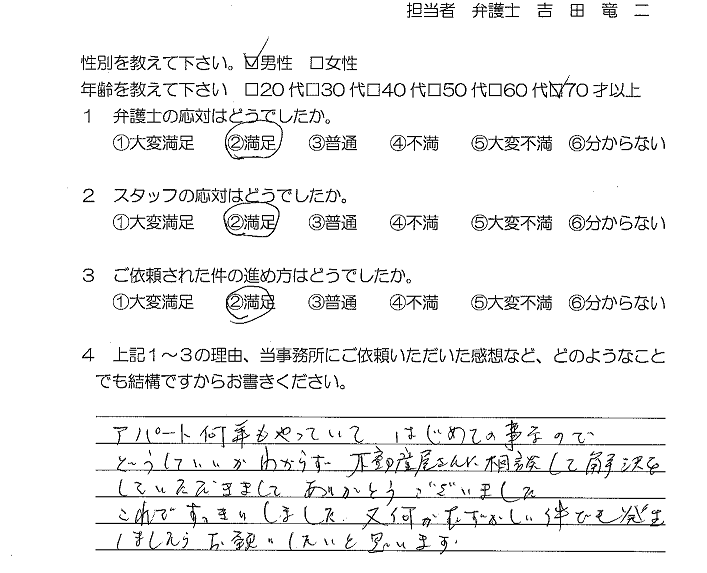 担当者　弁護士　吉　田　竜　二
性別を教えて下さい。☑男性　□女性
年齢を教えて下さい　□20代□30代□40代□50代□60代☑70才以上
1　弁護士の応対はどうでしたか。
①大変満足　②満足　③普通　④不満　⑤大変不満　⑥分からない
2　スタッフの応対はどうでしたか。
①大変満足　②満足　③普通　④不満　⑤大変不満　⑥分からない
3　ご依頼された件の進め方はどうでしたか。
①大変満足　②満足　③普通　④不満　⑤大変不満　⑥分からない
4　上記1～3の理由、当事務所にご依頼いただいた感想など、どのようなこと
でも結構ですからお書きください。
アパート何年もやっていて　はじめての事なので
どうしていいかわからず　不動産屋さんに相談して解決を
していただきまして　ありがとうございました
これですっきりしました　又何かむずかしい件でも発生
しましたら　お願いしたいと思います.